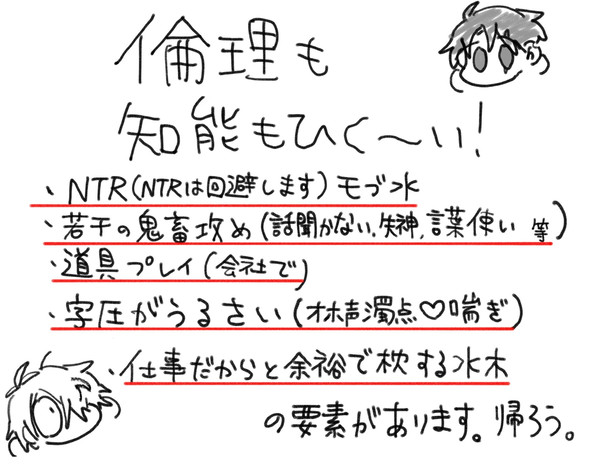 倫理も
知能もひく〜い!
・NTR(NTRは回避します)モブ水
・若干の鬼畜攻め(話聞かない、失神、言葉使い 等)
・道具プレイ(会社で)
・字圧がうるさい(オホ声濁点♡喘ぎ)
・仕事だからと余裕で枕する水木
の要素があります。帰ろう。